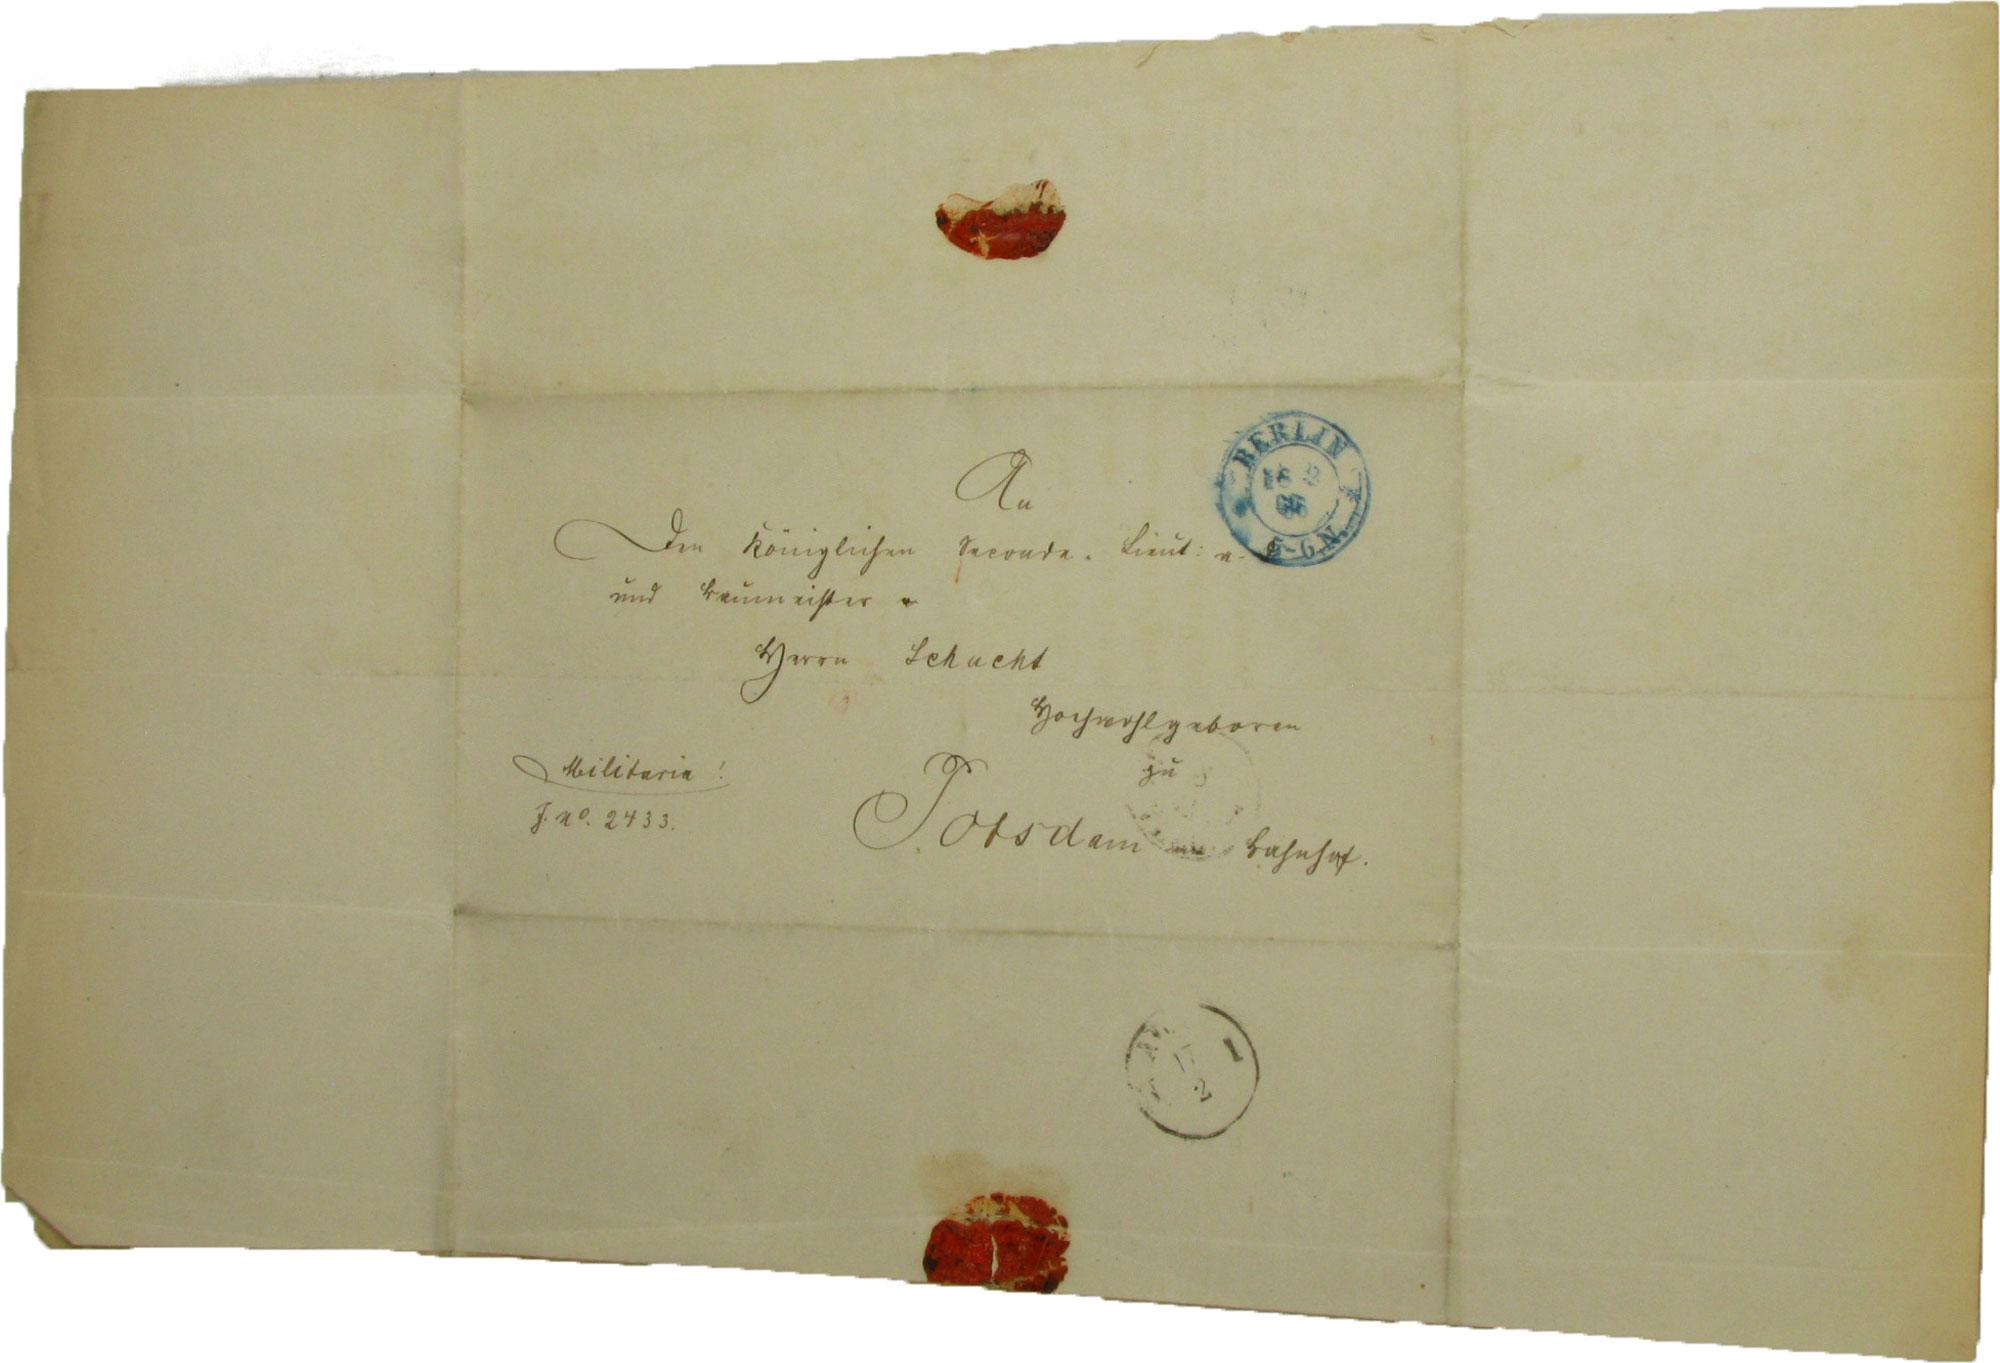 An
Den Königlichen Seconde-Lieut: u.
und Baumeister
Herrn Schacht
Hochwohlgeboren
zu
Potsdam Bahnhof.
Militaria!
J. No. 2433.
BERLIN
18 2
66
5-6 N.
1
2